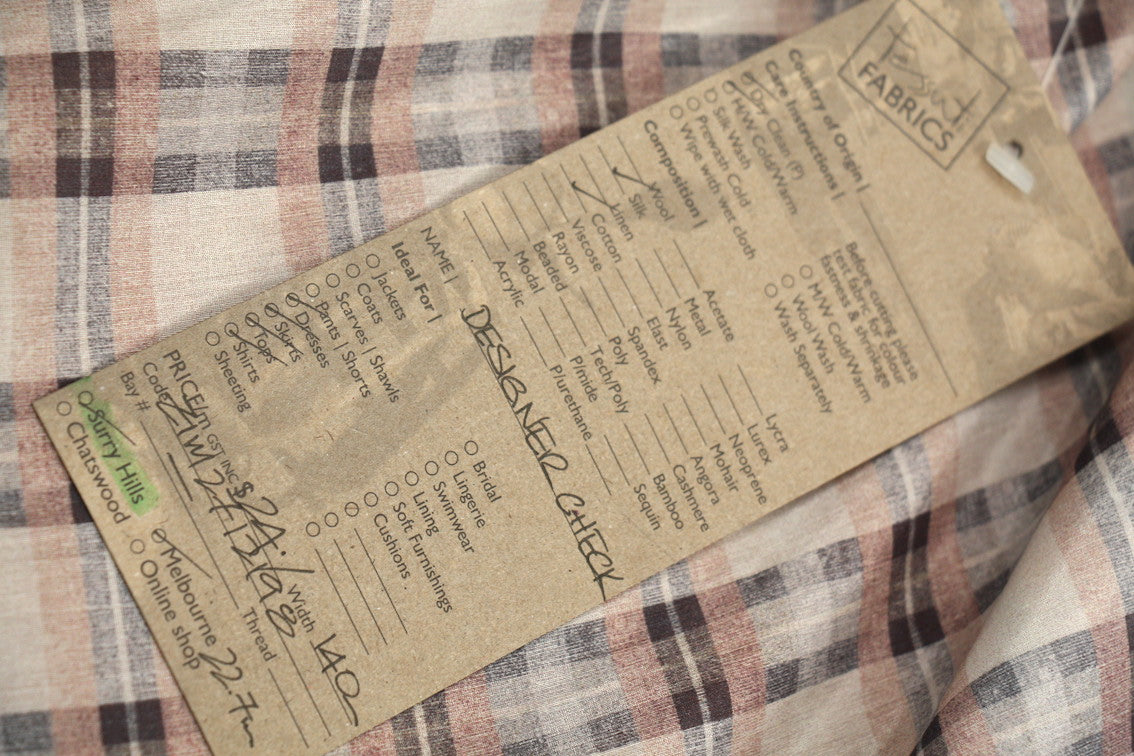 Tessuti
FABRICS
Country of Origin |
Care Instructions |
Dry Clean (P)
H/W Cold/Warm
Silk Wash
Prewash Cold
Wipe with wet cloth
Before cutting please
test fabric for colour
fastness & shrinkage
M/W Cold/Warm
Wool Wash
Wash Separately
Composition |
Wool
Silk
Linen
Cotton
Viscose
Rayon
Beaded
Modal
Acrylic
Acetate
Metal
Nylon
Elast
Spandex
Poly
Tech/Poly
P/mide
P/urethane
Lycra
Lurex
Neoprene
Mohair
Angora
Cashmere
Bamboo
Sequin
NAME | DESIGNER CHECK
Ideal For |
Jackets
Coats
Scarves | Shawls
Pants | Shorts
Dresses
Skirts
Tops
Shirts
Sheeting
Bridal
Lingerie
Swimwear
Lining
Soft Furnishings
Cushions
PRICE/m GST INC $ Width 140
Code
Bay # Thread
Surry Hills
Chatswood
Melbourne 22.7m
Online shop